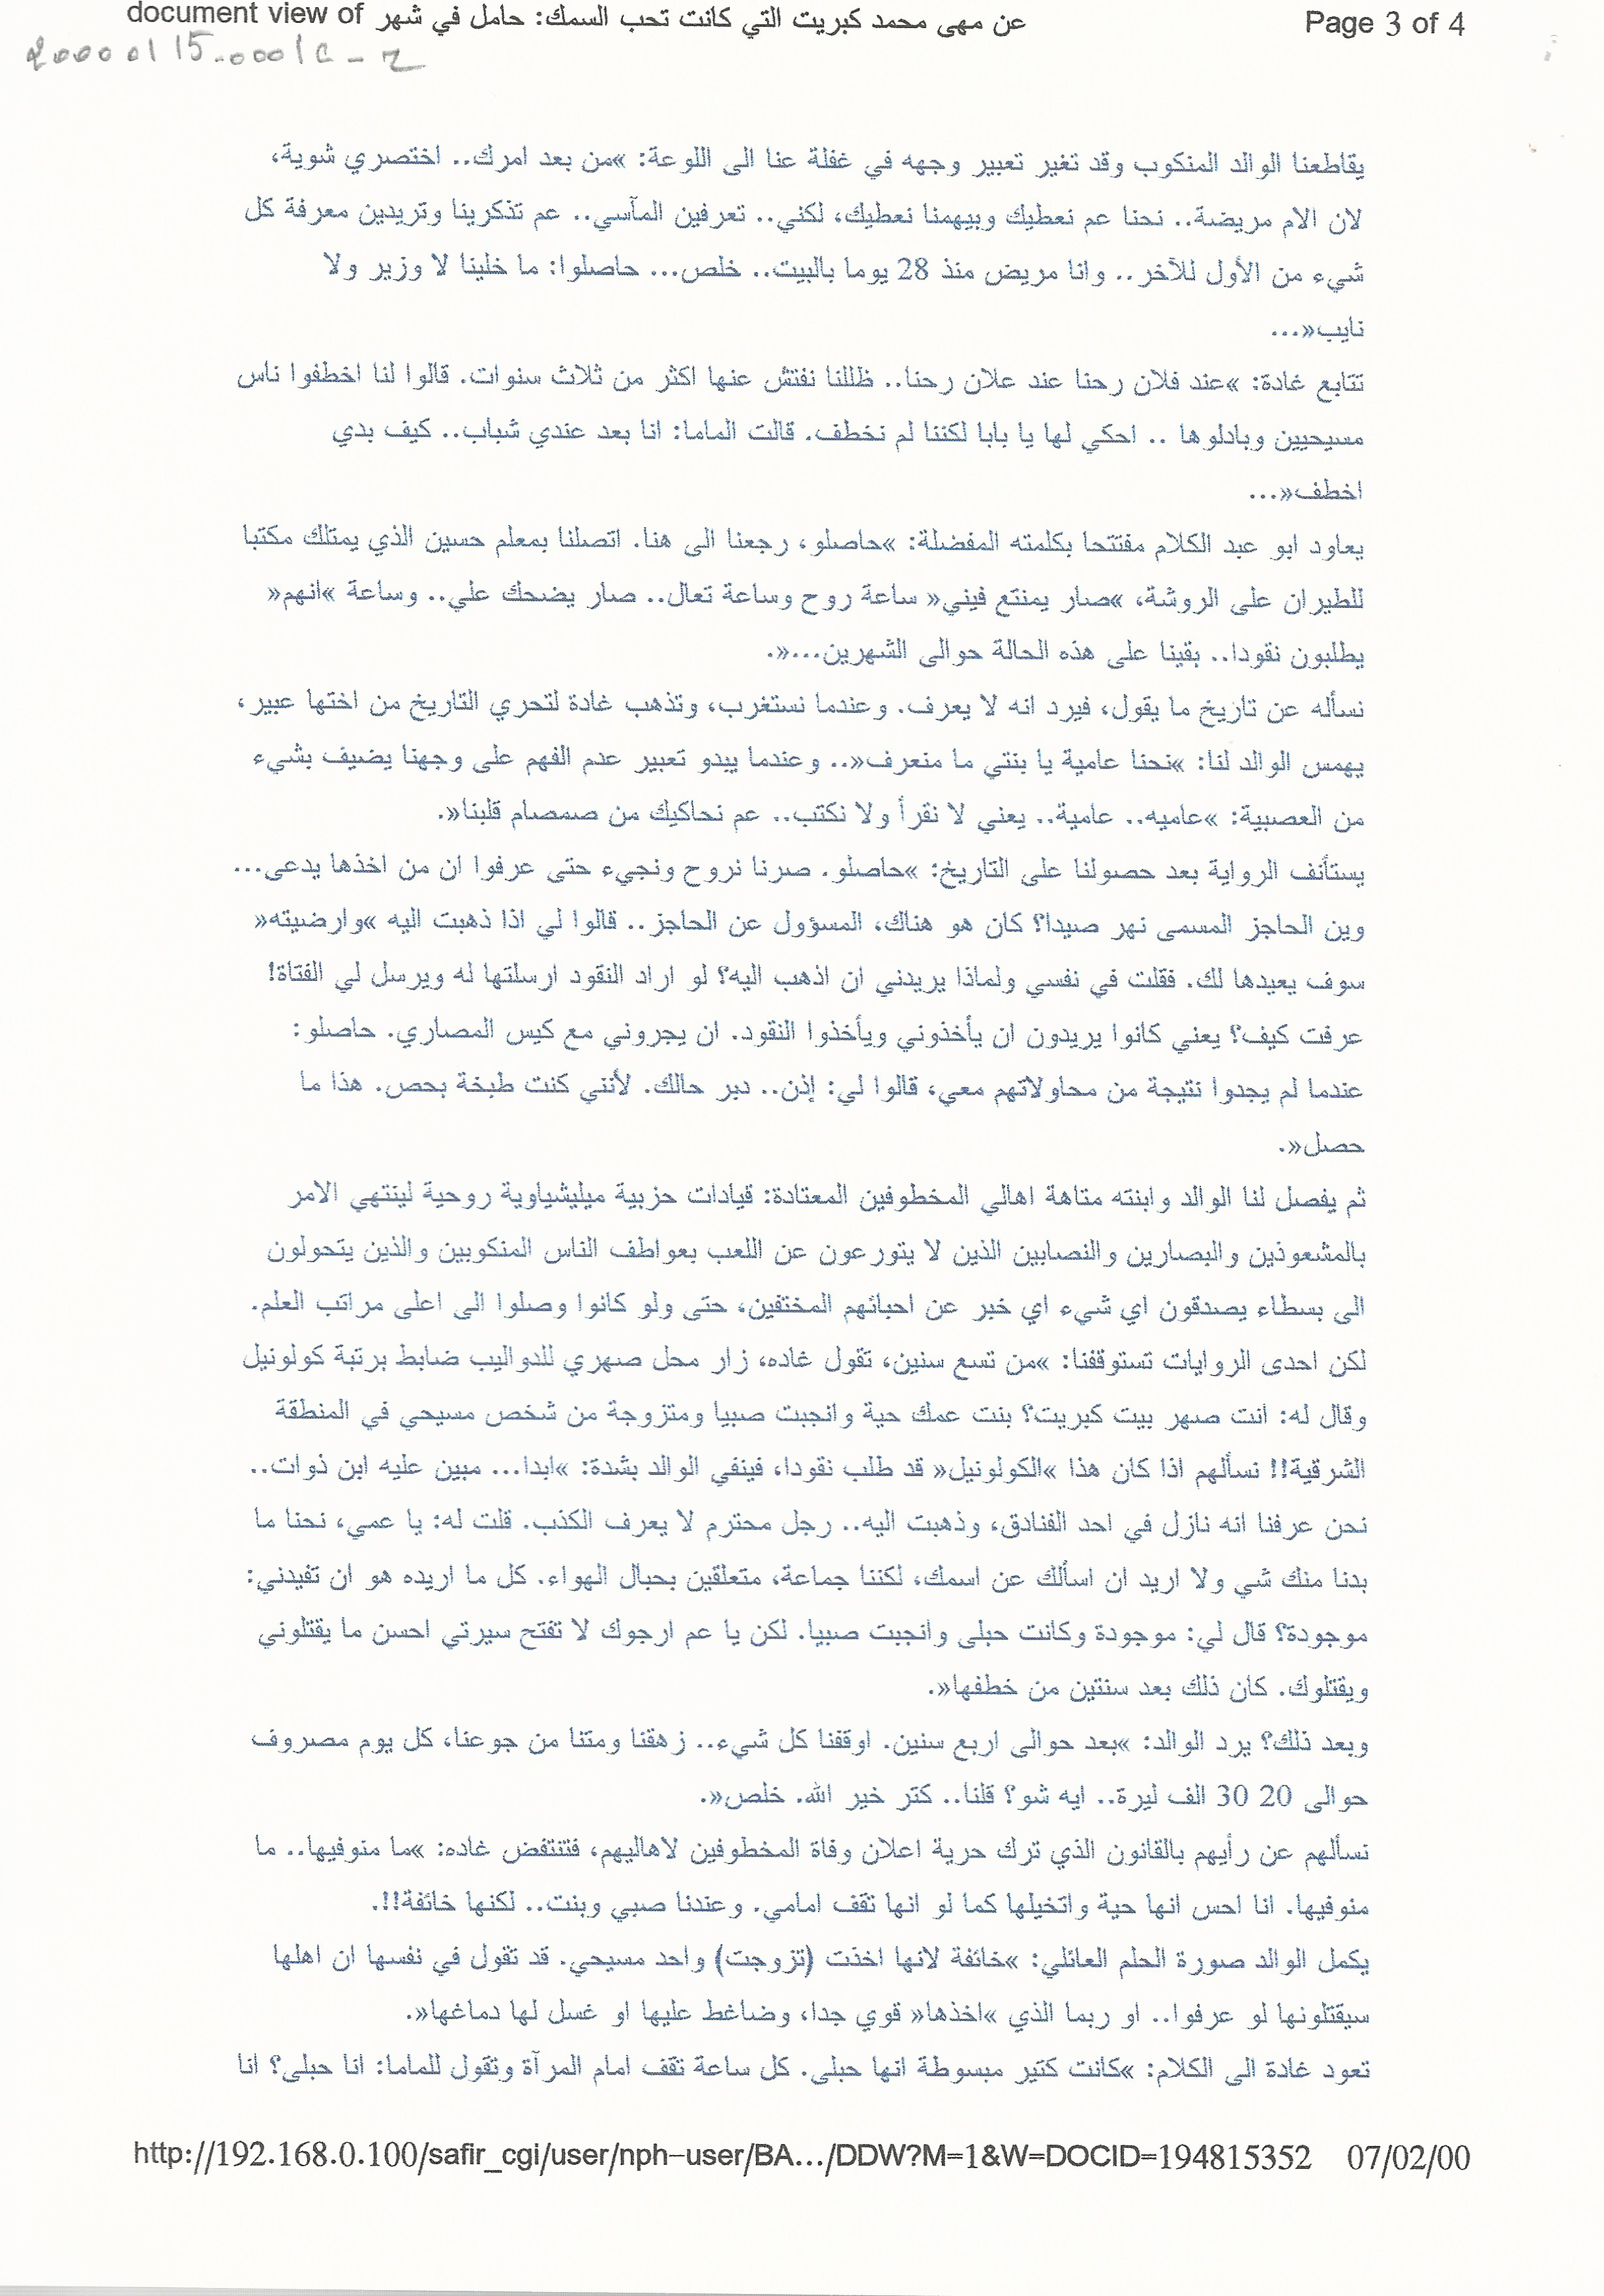 document view of عن مهى محمد كبريت التي كانت تحب السمك: حامل في شهر
Page 3 of 4
20000115-0001
يقاطعنا الوالد المنكوب وقد تغير تعبير وجهه في غفلة عنا الى اللوعة: »من بعد امرك.. اختصري شوية،
لان الام مريضة.. نحنا عم نعطيك وبيهمنا نعطيك، لكني.. تعرفين المآسي.. عم تذكرينا وتريدين معرفة كل
شيء من الأول للآخر.. وانا مريض منذ 28 يوما بالبيت.. خلص... حاصلوا: ما خلينا لا وزير ولا
نايب«...
تتابع غادة: »عند فلان رحنا عند علان رحنا.. ظللنا نفتش عنها اكثر من ثلاث سنوات. قالوا لنا اخطفوا ناس
مسيحيين وبادلوها .. احكي لها يا بابا لكننا لم نخطف. قالت الماما: انا بعد عندي شباب.. كيف بدي
اخطف«...
يعاود ابو عبد الكلام مفتتحا بكلمته المفضلة: »حاصلو، رجعنا الى هنا. اتصلنا بمعلم حسين الذي يمتلك مكتبا
للطيران على الروشة، »صار يمنتع فيني« ساعة روح وساعة تعال.. صار يضحك علي.. وساعة »انهم«
يطلبون نقودا.. بقينا على هذه الحالة حوالى الشهرين...«.
نسأله عن تاريخ ما يقول، فيرد انه لا يعرف. وعندما نستغرب، وتذهب غادة لتحري التاريخ من اختها عبير،
يهمس الوالد لنا: »نحنا عامية يا بنتي ما منعرف«.. وعندما يبدو تعبير عدم الفهم على وجهنا يضيف بشيء
من العصبية: »عاميه.. عامية.. يعني لا نقرأ ولا نكتب.. عم نحاكيك من صمصام قلبنا«.
يستأنف الرواية بعد حصولنا على التاريخ: »حاصلو. صرنا نروح ونجيء حتى عرفوا ان من اخذها يدعى...
وين الحاجز المسمى نهر صيدا؟ كان هو هناك، المسؤول عن الحاجز.. قالوا لي اذا ذهبت اليه »وارضيته«
سوف يعيدها لك. فقلت في نفسي ولماذا يريدني ان اذهب اليه؟ لو اراد النقود ارسلتها له ويرسل لي الفتاة!
عرفت كيف؟ يعني كانوا يريدون ان يأخذوني ويأخذوا النقود. ان يجروني مع كيس المصاري. حاصلو:
عندما لم يجدوا نتيجة من محاولاتهم معي، قالوا لي: إذن.. دبر حالك. لأنني كنت طبخة بحص. هذا ما
حصل«.
ثم يفصل لنا الوالد وابنته متاهة اهالي المخطوفين المعتادة: قيادات حزبية ميليشياوية روحية لينتهي الامر
بالمشعوذين والبصارين والنصابين الذين لا يتورعون عن اللعب بعواطف الناس المنكوبين والذين يتحولون
الى بسطاء يصدقون اي شيء اي خبر عن احبائهم المختفين، حتى ولو كانوا وصلوا الى اعلى مراتب العلم.
لكن احدى الروايات تستوقفنا: »من تسع سنين، تقول غاده، زار محل صهري للدواليب ضابط برتبة كولونيل
وقال له: انت صهر بيت كبريت؟ بنت عمك حية وانجبت صبيا ومتزوجة من شخص مسيحي في المنطقة
الشرقية!! نسألهم اذا كان هذا »الكولونيل« قد طلب نقودا، فينفي الوالد بشدة: »ابدا... مبين عليه ابن ذوات..
نحن عرفنا انه نازل في احد الفنادق، وذهبت اليه.. رجل محترم لا يعرف الكذب. قلت له: يا عمي، نحنا ما
بدنا منك شي ولا اريد ان اسألك عن اسمك، لكننا جماعة، متعلقين بحبال الهواء. كل ما اريده هو ان تفيدني:
موجودة؟ قال لي: موجودة وكانت حبلى وانجبت صبيا. لكن يا عم ارجوك لا تفتح سيرتي احسن ما يقتلوني
ويقتلوك. كان ذلك بعد سنتين من خطفها«.
وبعد ذلك؟ يرد الوالد: »بعد حوالى اربع سنين. اوقفنا كل شيء.. زهقنا ومتنا من جوعنا، كل يوم مصروف
حوالى 20 30 الف ليرة.. ايه شو؟ قلنا.. كتر خير الله. خلص«.
نسألهم عن رأيهم بالقانون الذي ترك حرية اعلان وفاة المخطوفين لاهاليهم، فتنتفض غاده: »ما منوفيها.. ما
منوفيها. انا احس انها حية واتخيلها كما لو انها تقف امامي. وعندنا صبي وبنت.. لكنها خائفة!!.
يكمل الوالد صورة الحلم العائلي: »خائفة لانها اخذت (تزوجت) واحد مسيحي. قد تقول في نفسها ان اهلها
سيقتلونها لو عرفوا.. او ربما الذي »اخذها« قوي جدا، وضاغط عليها او غسل لها دماغها«.
تعود غادة الى الكلام: »كانت كتير مبسوطة انها حبلى. كل ساعة تقف امام المرآة وتقول للماما: انا حبلى؟ انا
http://192.168.0.100/safir_cgi/user/nph-user/BA.../DDW?M=1&W=DOCID=194815352 07/02/00